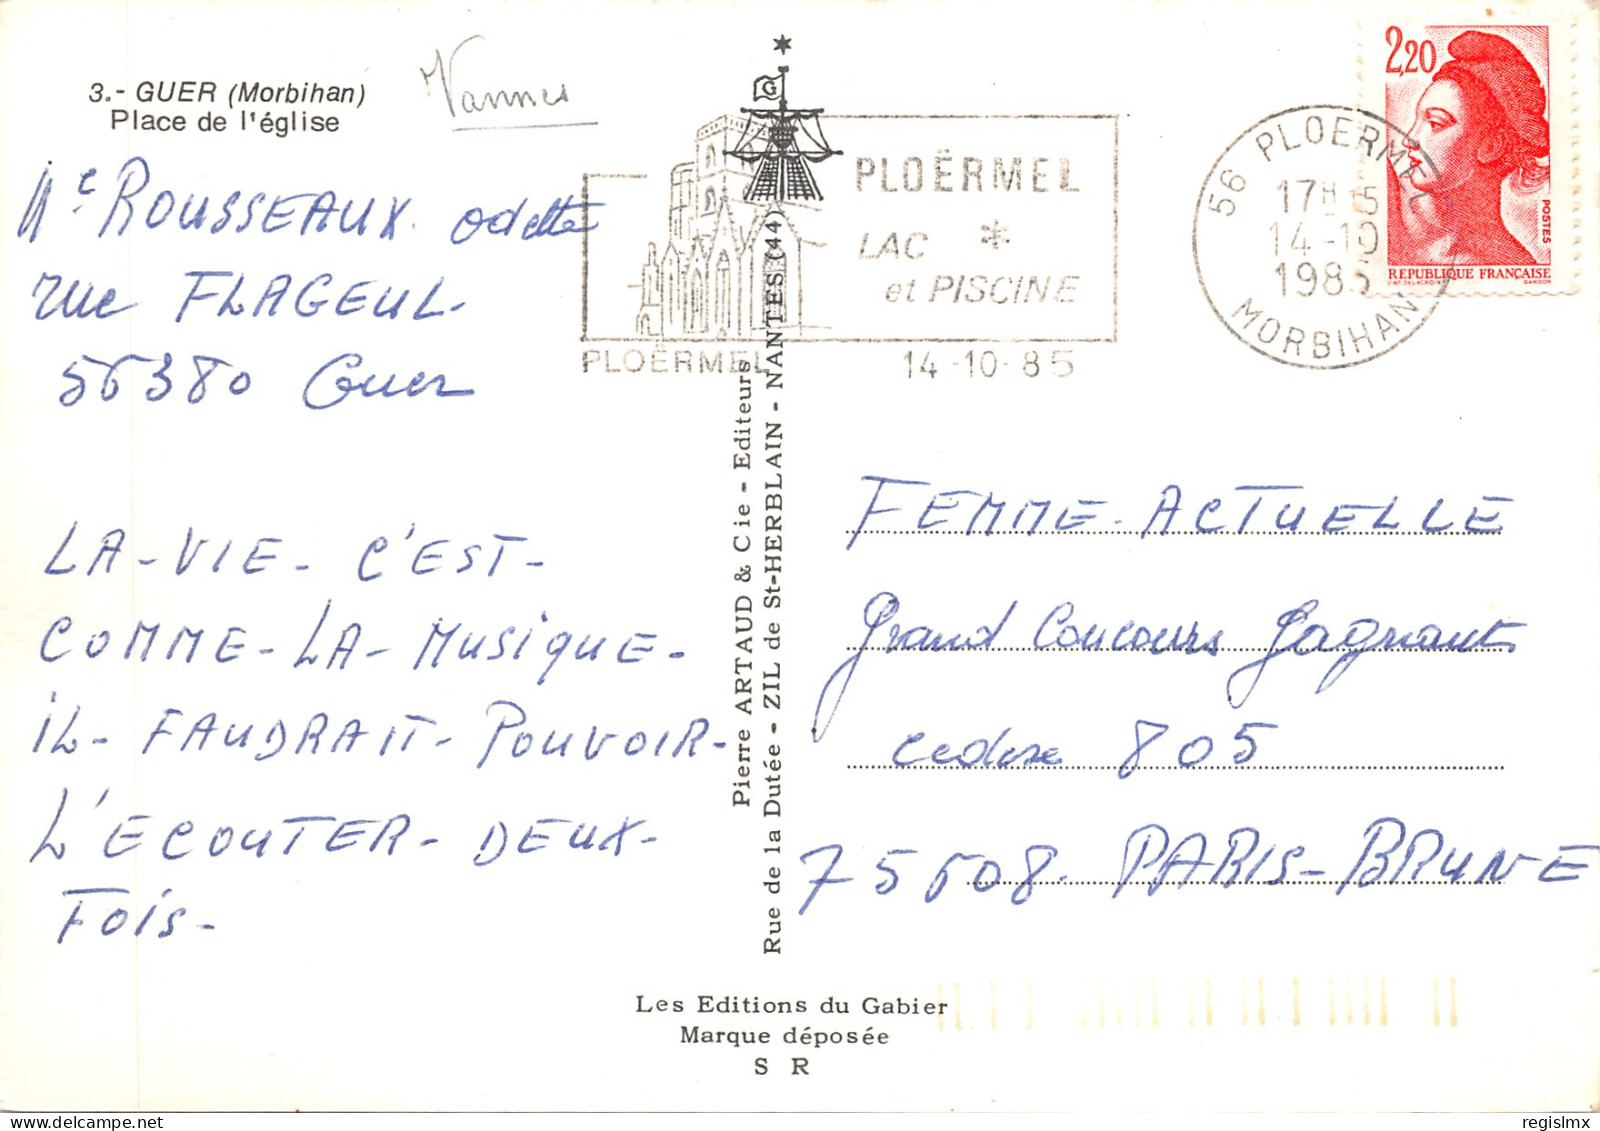 3.- GUER (Morbihan)
Place de l'église
Vannes
Me ROUSSEAUX. odette
rue FLAGEUL.
56380 Guer
LA-VIE-C'EST-
COMME-LA-MUSIQUE-
IL-FAUDRAIT-POUVOIR-
L'ECOUTER-DEUX-
FOIS-
G
PLOËRMEL
LAC *
et PISCINE
PLOËRMEL 14-10-85
56 PLOERMEL
17H15
14-10
1985
MORBIHAN
2,20
POSTES
REPUBLIQUE FRANÇAISE
D'AP. DELACROIX GANDON
Pierre ARTAUD & Cie - Editeurs
Rue de la Dutée - ZIL de St-HERBLAIN - NANTES (44)
FEMME-ACTUELLE
Grand Concours Gagnants
cedex 805
75608. PARIS-BRUNE
Les Editions du Gabier
Marque déposée
S R
regislmx